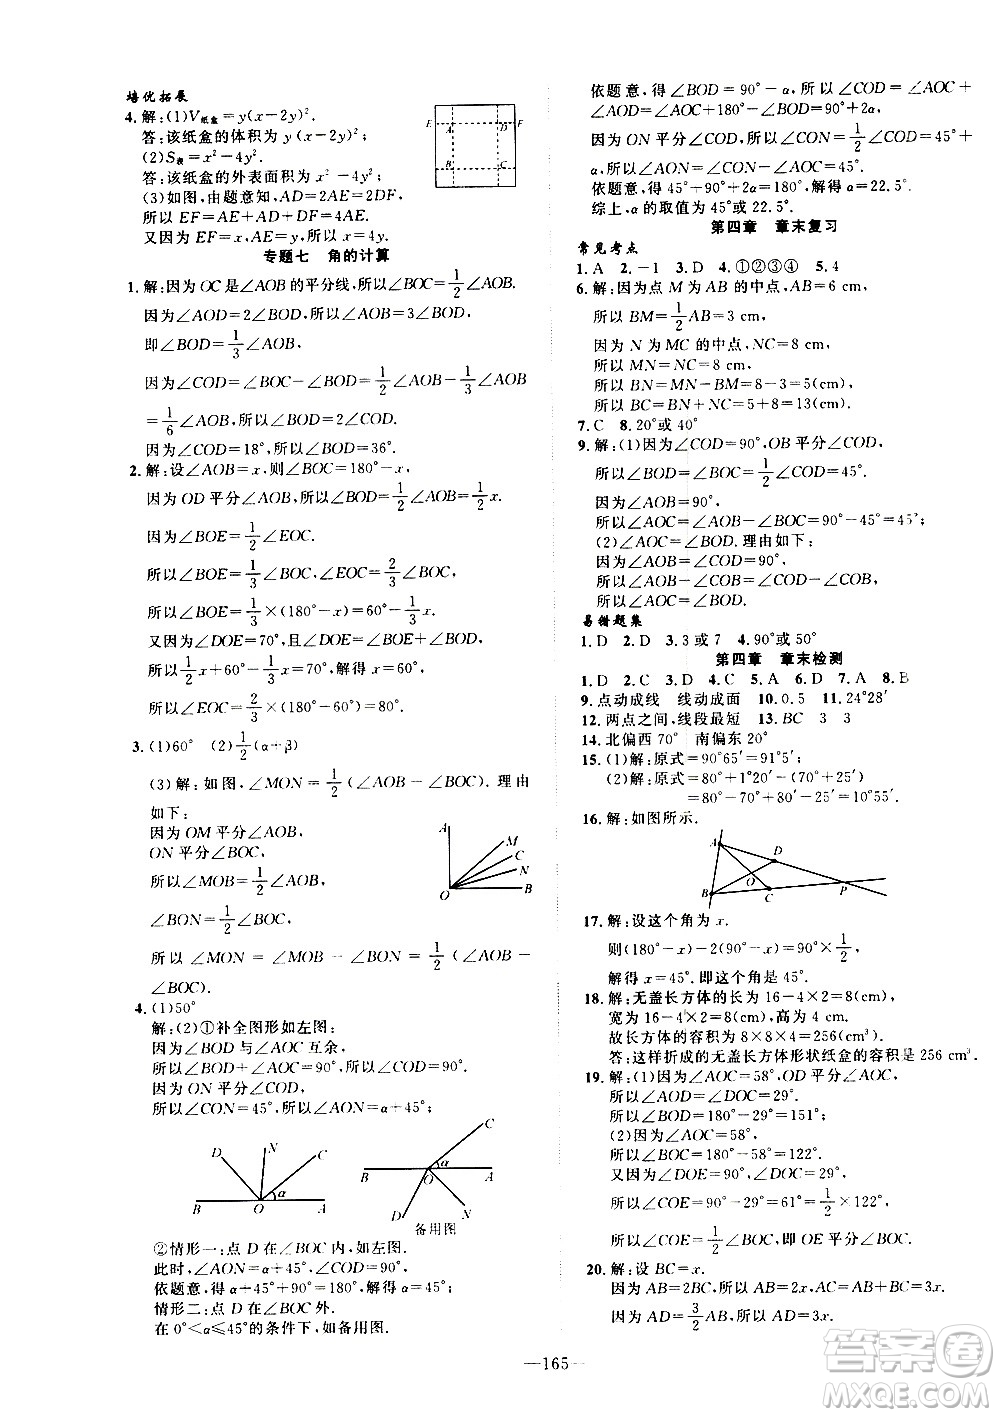 培优拓展
4.解:(1)V纸盒=y(x-2y)².
答:该纸盒的体积为 y(x-2y)²;
(2)S表=x²-4y².
答:该纸盒的外表面积为 x²-4y²;
(3)如图,由题意知,AD=2AE=2DF.
所以 EF=AE+AD+DF=4AE.
又因为 EF=x,AE=y,所以 x=4y.
E A D F
B C
专题七 角的计算
1.解:因为 OC 是∠AOB 的平分线,所以∠BOC=1/2∠AOB.
因为∠AOD=2∠BOD,所以∠AOB=3∠BOD,
即∠BOD=1/3∠AOB,
因为∠COD=∠BOC-∠BOD=1/2∠AOB-1/3∠AOB
=1/6∠AOB,所以∠BOD=2∠COD.
因为∠COD=18°,所以∠BOD=36°.
2.解:设∠AOB=x,则∠BOC=180°-x,
因为 OD 平分∠AOB,所以∠BOD=1/2∠AOB=1/2x.
因为∠BOE=1/2∠EOC.
所以∠BOE=1/3∠BOC,∠EOC=2/3∠BOC,
所以∠BOE=1/3×(180°-x)=60°-1/3x.
又因为∠DOE=70°,且∠DOE=∠BOD+∠BOE,
所以1/2x+1/3(180°-x)=70°,解得 x=60°.
所以∠EOC=2/3×(180°-60°)=80°.
3.(1)60° (2)1/2(α+β)
(3)解:如图,∠MON=1/2(∠AOB-∠BOC).理由
如下:
因为 OM 平分∠AOB,
ON 平分∠BOC,
所以∠MOB=1/2∠AOB,
∠BON=1/2∠BOC,
所以 ∠MON = ∠MOB - ∠BON = 1/2(∠AOB-
∠BOC).
A M C N O B
4.(1)50°
解:(2)①补全图形如左图:
因为∠BOD 与∠AOC 互余,
所以∠BOD+∠AOC=90°,所以∠COD=90°.
因为 ON 平分∠COD,
所以∠CON=45°,所以∠AON=α+45°;
D N C α B O A
C α B O A D N
备用图
②情形一:点 D 在∠BOC 内,如左图.
此时,∠AON=α+45°,∠COD=90°,
依题意,得 α+45°+90°=180°,解得 α=45°.
情形二:点 D 在∠BOC 外.
在 0°<α≤45°的条件下,如备用图.
依题意,得∠BOD=90°-α,所以∠COD=∠AOC+
∠AOD=∠AOC+180°-∠BOD=90°+2α,
因为 ON 平分∠COD,所以∠CON=1/2∠COD=45°+
α,所以∠AON=∠CON-∠AOC=45°.
依题意得 45°+90°+2α=180°,解得 α=22.5°.
综上,α 的取值为 45°或 22.5°.
第四章 章末复习
常见考点
1.A 2.-1 3.D 4.①②③④ 5.4
6.解:因为点 M 为 AB 的中点,AB=6 cm,
所以 BM=1/2AB=3 cm,
因为 N 为 MC 的中点,NC=8 cm,
所以 MN=NC=8 cm,
所以 BN=MN-BM=8-3=5(cm),
所以 BC=BN+NC=5+8=13(cm).
7.C 8.20°或 40°
9.解:(1)因为∠COD=90°,OB 平分∠COD,
所以∠BOC=∠BOD=1/2∠COD=45°.
因为∠AOB=90°,
所以∠AOC=∠AOB-∠BOC=90°-45°=45°;
(2)∠AOC=∠BOD.理由如下:
因为∠AOB=∠COD=90°,
所以∠AOB-∠COB=∠COD-∠COB,
所以∠AOC=∠BOD.
易错题集
1.D 2.D 3.3 或 7 4.90°或 50°
第四章 章末检测
1.D 2.C 3.D 4.C 5.A 6.D 7.A 8.B
9.点动成线 线动成面 10.0.5 11.24°28′
12.两点之间,线段最短 13.BC 3 3
14.北偏西 70° 南偏东 20°
15.(1)解:原式=90°65′=91°5′;
(2)解:原式=80°+1°20′-(70°+25′)
=80°-70°+80′-25′=10°55′.
16.解:如图所示.
A D O B C P
17.解:设这个角为 x.
则(180°-x)-2(90°-x)=90°×1/2,
解得 x=45°.即这个角是 45°.
18.解:无盖长方体的长为 16-4×2=8(cm),
宽为 16-4×2=8(cm),
故长方体的容积为 8×8×4=256(cm³).
答:这样折成的无盖长方体形状纸盒的容积是 256 cm³.
19.解:(1)因为∠AOC=58°,OD 平分∠AOC,
所以∠AOD=∠DOC=29°.
所以∠BOD=180°-29°=151°;
(2)因为∠AOC=58°,
所以∠BOC=180°-58°=122°.
又因为∠DOE=90°,∠DOC=29°,
所以∠COE=90°-29°=61°=1/2×122°.
所以∠COE=1/2∠BOC,即 OE 平分∠BOC.
20.解:设 BC=x.
因为 AB=2BC,所以 AB=2x,AC=AB+BC=3x.
因为 AD=3/2AB,所以 AD=3x.
—165—
答案圈
MXQE.COM